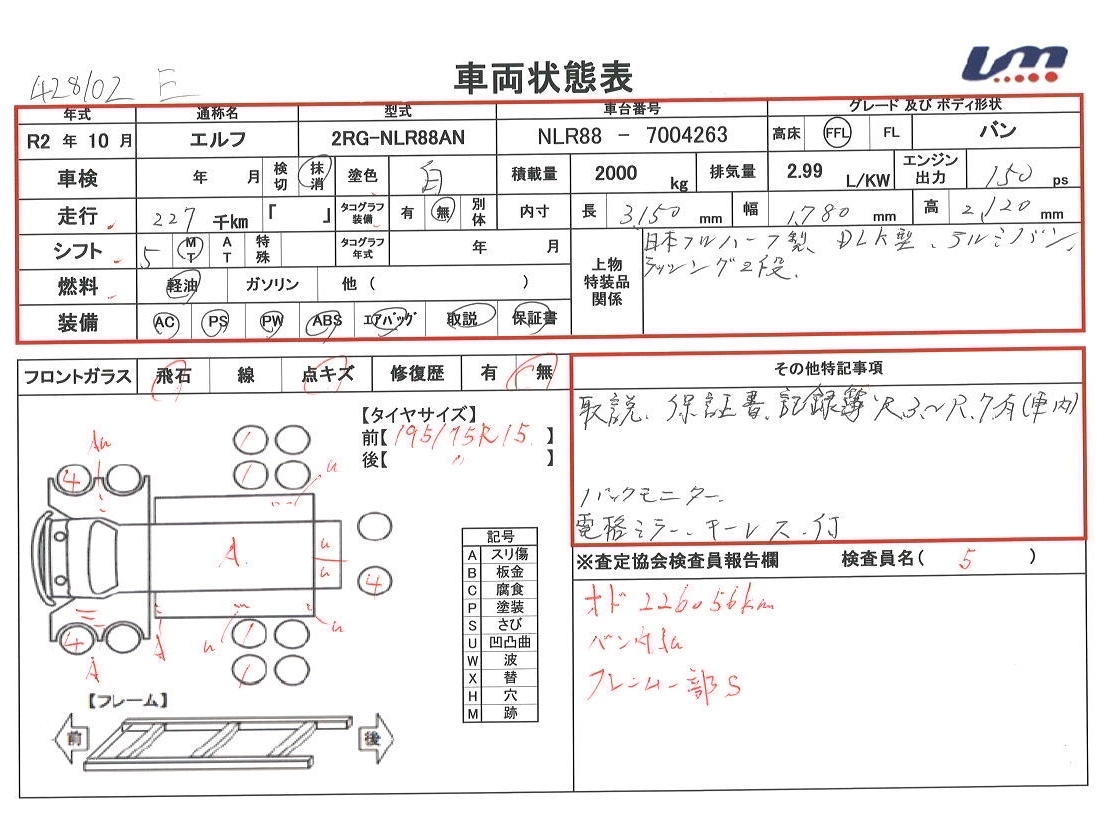 428102 E
車両状態表
UM
年式 通称名 型式 車台番号 グレード 及び ボディ形状
R2 年 10 月 エルフ 2RG-NLR88AN NLR88 - 7004263 高床 FFL FL バン
車検 年 月 検切 抹消 塗色 白 積載量 2000 kg 排気量 2.99 L/KW エンジン出力 150 ps
走行 227 千km 「 」 タコグラフ装備 有 無 別体 内寸 長 3,150 mm 幅 1,780 mm 高 2,120 mm
シフト 5 MT AT 特殊 タコグラフ年式 年 月
燃料 軽油 ガソリン 他 ( )
装備 AC PS PW ABS エアバッグ 取説 保証書
上物特装品関係
日本フルハーフ製、DLK型、アルミバン、
ラッシング2段、
フロントガラス 飛石 線 点キズ 修復歴 有 無
その他特記事項
取説、保証書、記録簿R.3〜R.7有(車内)
バックモニター、
電格ミラー、キーレス、付
【タイヤサイズ】
前【195/75R15 】
後【 〃 】
Au
4
u
A
u
u
4
u
u
4
A
A
記号
A スリ傷
B 板金
C 腐食
P 塗装
S さび
U 凹凸曲
W 波
X 替
H 穴
M 跡
【フレーム】
前 後
※査定協会検査員報告欄 検査員名( 5 )
オド 226056km
バン内Au
フレーム一部S